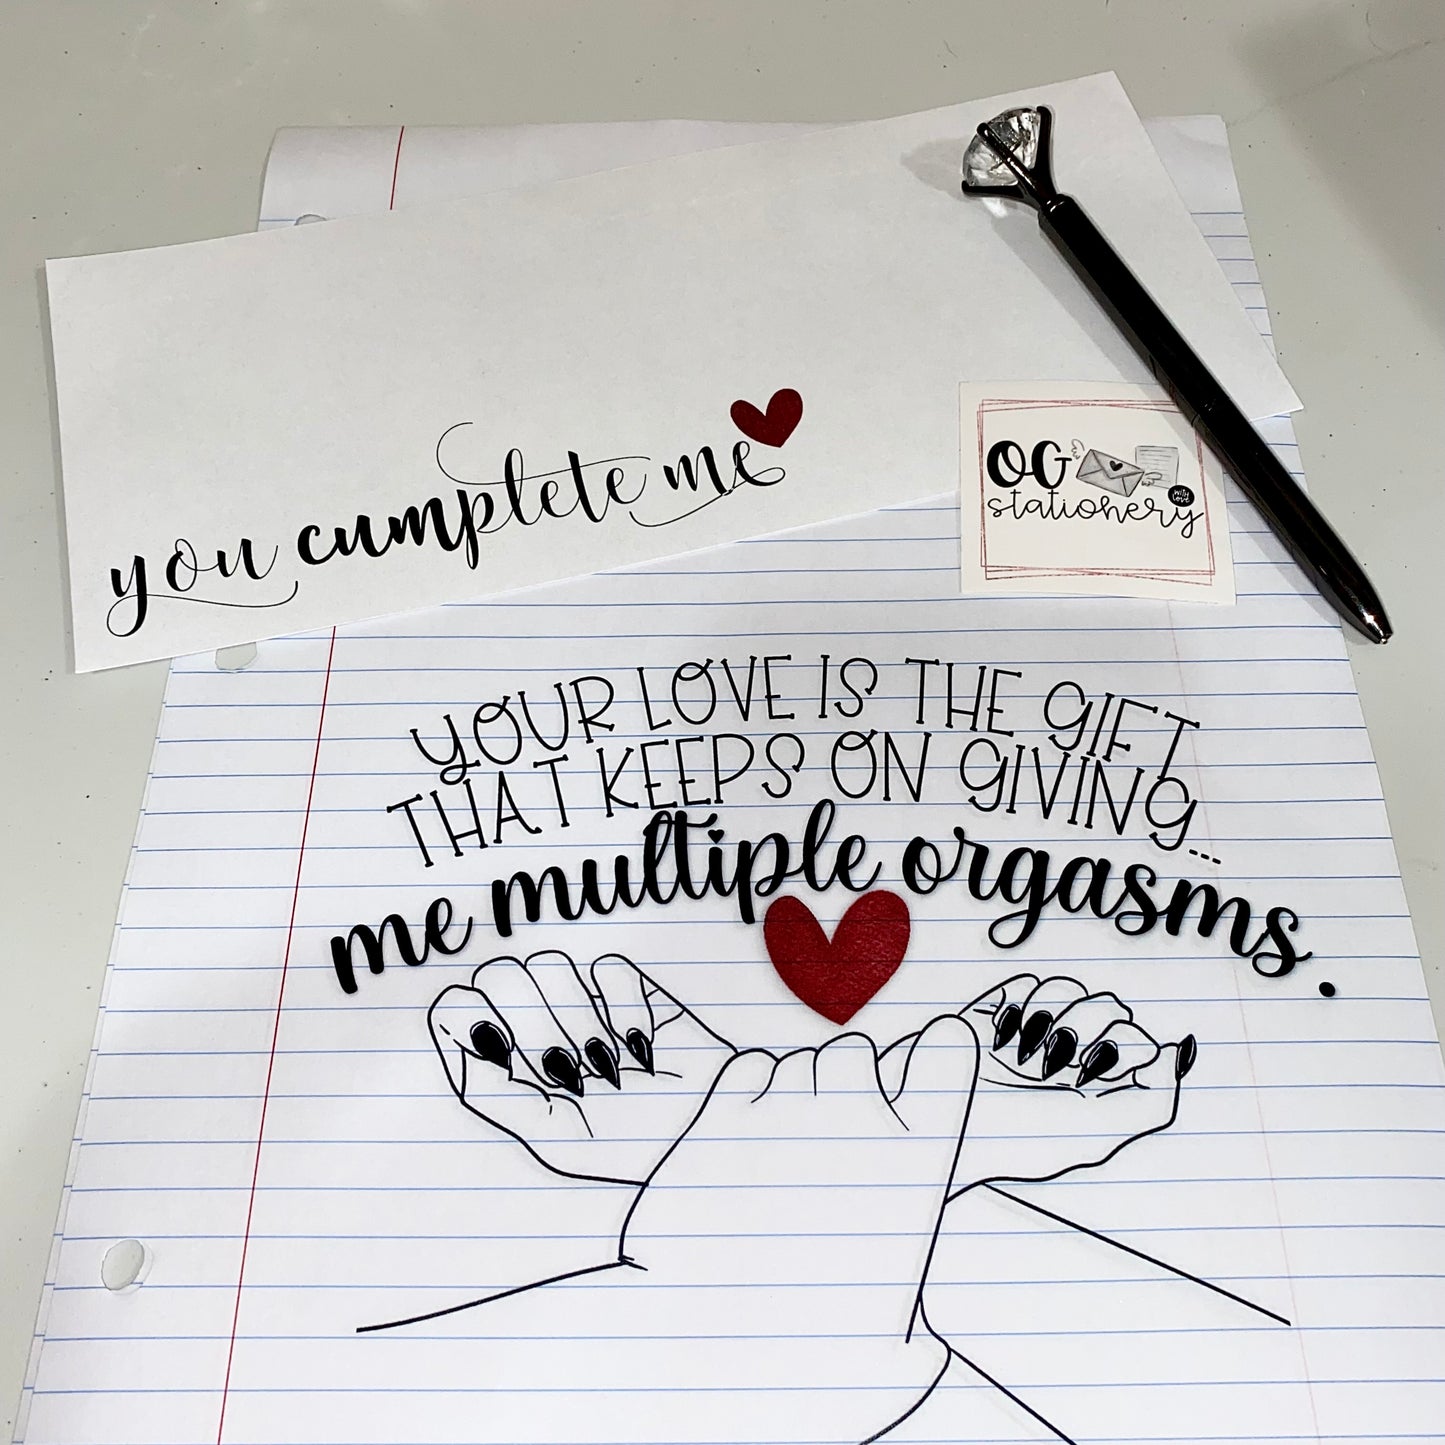 you cumplete me
OG
stationery
with
love
YOUR LOVE IS THE GIFT
THAT KEEPS ON GIVING...
me multiple orgasms.